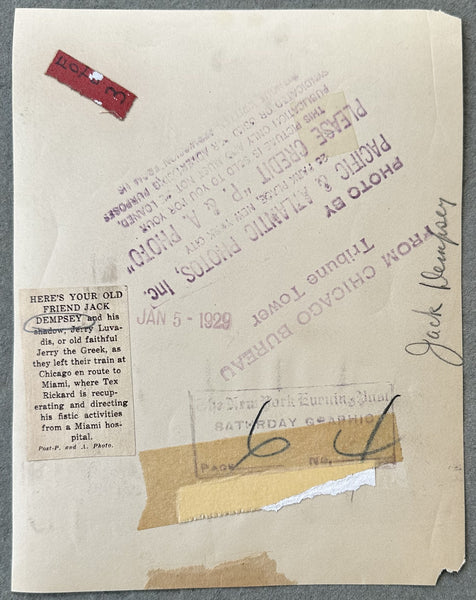 PHOTO BY
PACIFIC & ATLANTIC PHOTOS, Inc.
25 PARK PLACE, NEW YORK CITY
PLEASE CREDIT "P & A PHOTO"
THIS PICTURE IS SOLD TO YOU FOR YOUR
PUBLICATION ONLY AND MUST NOT BE LOANED,
SYNDICATED OR USED FOR ADVERTISING PURPOSES
FROM CHICAGO BUREAU
Tribune Tower
JAN 5 - 1929
Jack Dempsey
HERE'S YOUR OLD
FRIEND JACK
DEMPSEY and his
shadow, Jerry Luva-
dis, or old faithful
Jerry the Greek, as
they left their train at
Chicago en route to
Miami, where Tex
Rickard is recup-
erating and directing
his fistic activities
from a Miami hos-
pital.
Post-P. and A. Photo.
The New York Evening Post
SATURDAY GRAPHIC
PAGE 6 No. 4